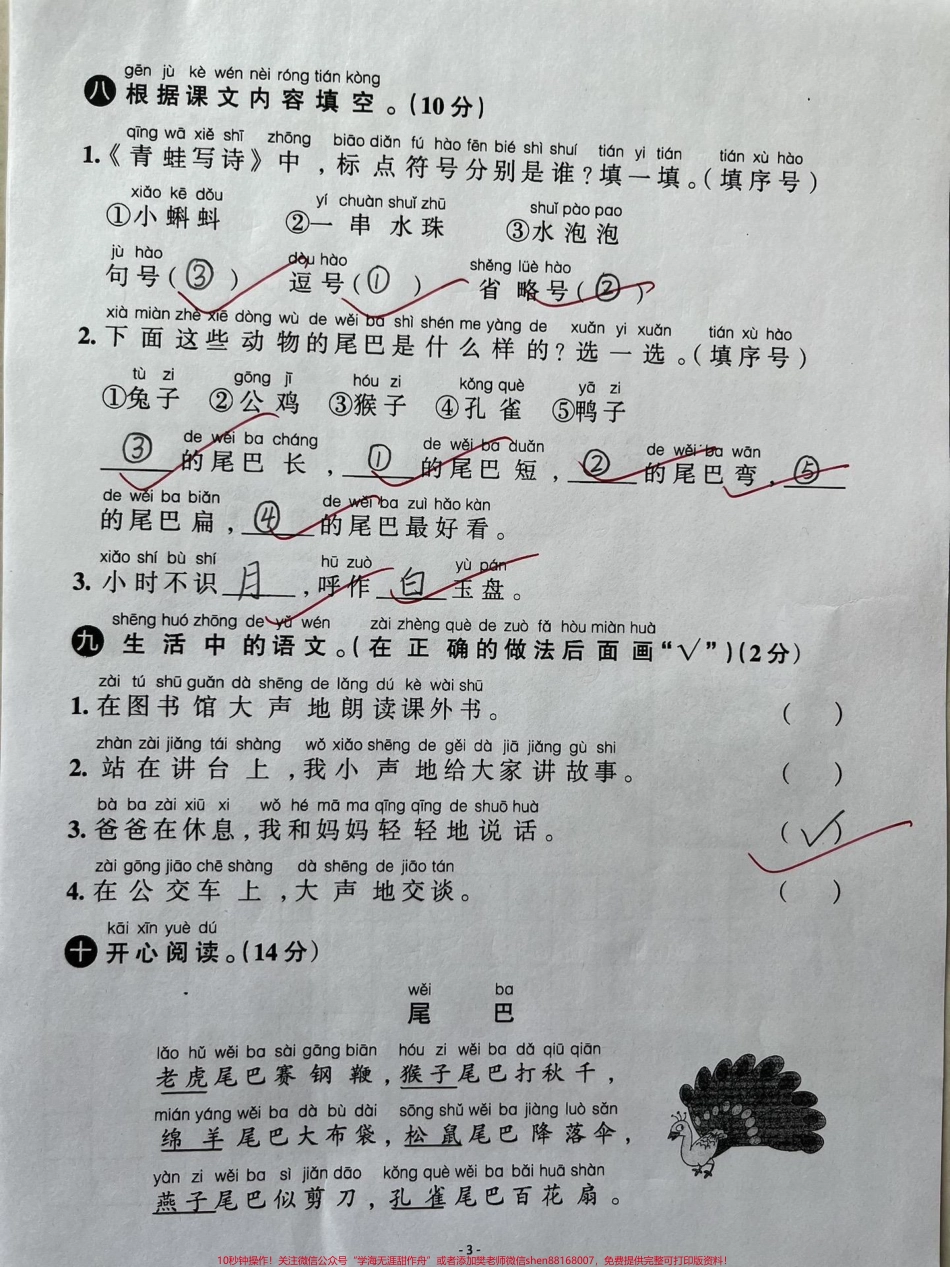 gēn jù kè wén nèi róng tián kòng
八 根据课文内容填空。(10分)
qīng wā xiě shī zhōng biāo diǎn fú hào fēn bié shì shuí tián yi tián tián xù hào
1.《青蛙写诗》中,标点符号分别是谁?填一填。(填序号)
xiǎo kē dǒu yí chuàn shuǐ zhū shuǐ pào pao
①小蝌蚪 ②一串水珠 ③水泡泡
jù hào dòu hào shěng lüè hào
句号(③) 逗号(①) 省略号(②)
xià miàn zhè xiē dòng wù de wěi ba shì shén me yàng de xuǎn yi xuǎn tián xù hào
2.下面这些动物的尾巴是什么样的?选一选。(填序号)
tù zi gōng jī hóu zi kǒng què yā zi
①兔子 ②公鸡 ③猴子 ④孔雀 ⑤鸭子
de wěi ba cháng de wěi ba duǎn de wěi ba wān
③的尾巴长,①的尾巴短,②的尾巴弯,⑤
de wěi ba biǎn de wěi ba zuì hǎo kàn
的尾巴扁,④的尾巴最好看。
xiǎo shí bù shí hū zuò yù pán
3.小时不识月,呼作白玉盘。
shēng huó zhōng de yǔ wén zài zhèng què de zuò fǎ hòu miàn huà
九 生活中的语文。(在正确的做法后面画“√”)(2分)
zài tú shū guǎn dà shēng de lǎng dú kè wài shū
1.在图书馆大声地朗读课外书。 ( )
zhàn zài jiǎng tái shàng wǒ xiǎo shēng de gěi dà jiā jiǎng gù shi
2.站在讲台上,我小声地给大家讲故事。 ( )
bà ba zài xiū xi wǒ hé mā ma qīng qīng de shuō huà
3.爸爸在休息,我和妈妈轻轻地说话。 (√)
zài gōng jiāo chē shàng dà shēng de jiāo tán
4.在公交车上,大声地交谈。 ( )
kāi xīn yuè dú
十 开心阅读。(14分)
wěi ba
尾巴
lǎo hǔ wěi ba sài gāng biān hóu zi wěi ba dǎ qiū qiān
老虎尾巴赛钢鞭,猴子尾巴打秋千,
mián yáng wěi ba dà bù dài sōng shǔ wěi ba jiàng luò sǎn
绵羊尾巴大布袋,松鼠尾巴降落伞,
yàn zi wěi ba sì jiǎn dāo kǒng què wěi ba bǎi huā shàn
燕子尾巴似剪刀,孔雀尾巴百花扇。
- 3 -
10秒钟操作!关注微信公众号“学海无涯甜作舟”或者添加樊老师微信shen88168007,免费提供完整可打印版资料!